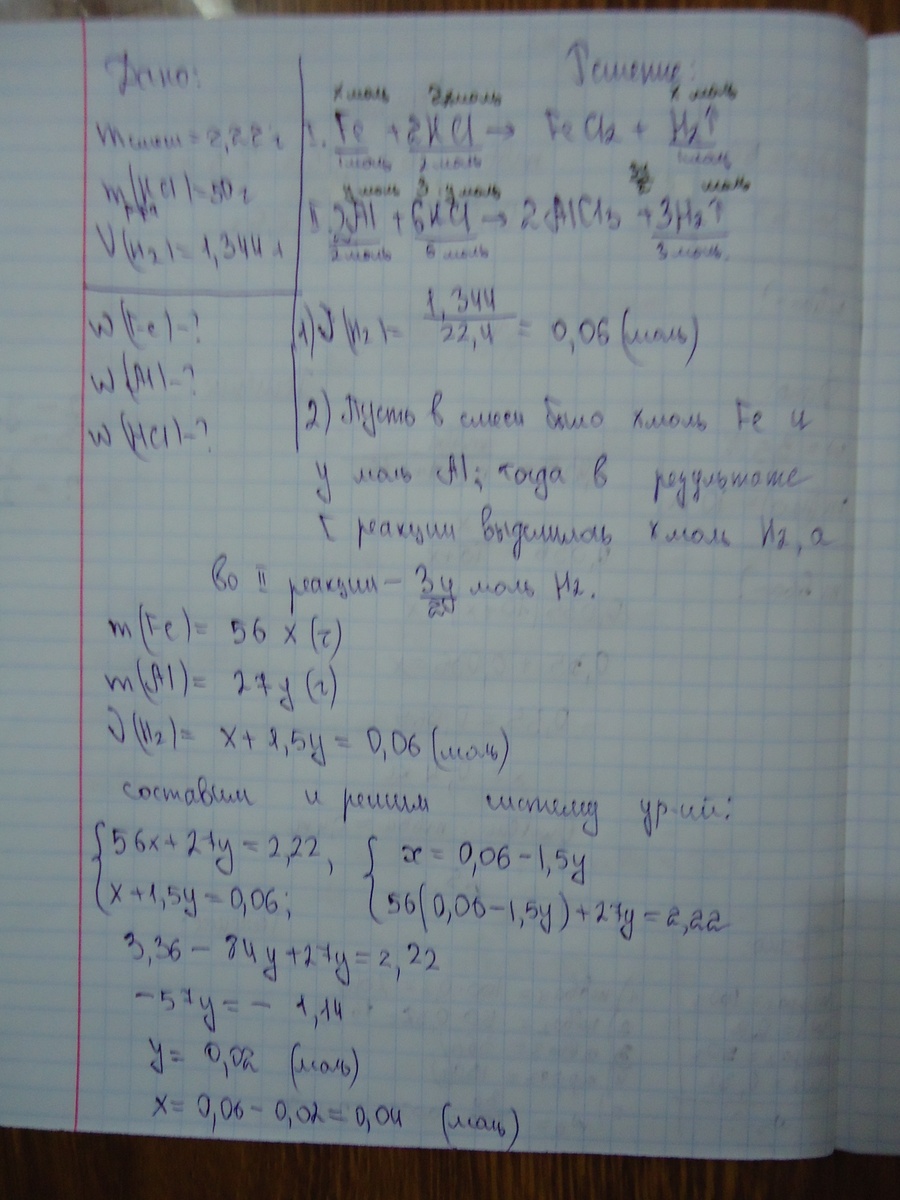 Дано:
mсмеси = 2,22 г
mр-ра(HCl) = 50 г
V(H2) = 1,344 л
w(Fe) - ?
w(Al) - ?
w(HCl) - ?
Решение:
x моль 2x моль x моль
I. Fe + 2HCl → FeCl2 + H2↑
1 моль 2 моль 1 моль
y моль 3y моль 3y/2 моль
II. 2Al + 6HCl → 2AlCl3 + 3H2↑
2 моль 6 моль 3 моль.
1) ν(H2) = 1,344/22,4 = 0,06 (моль)
2) Пусть в смеси было x моль Fe и
y моль Al; тогда в результате
I реакции выделилось x моль H2, а
во II реакции – 3y/2 моль H2.
m(Fe) = 56 x (г)
m(Al) = 27 y (г)
ν(H2) = x + 1,5y = 0,06 (моль)
составим и решим систему ур-ий:
{56x + 27y = 2,22, { x = 0,06 - 1,5y
{x + 1,5y = 0,06; {56(0,06 - 1,5y) + 27y = 2,22
3,36 - 84y + 27y = 2,22
-57y = - 1,14
y = 0,02 (моль)
x = 0,06 - 0,02 = 0,04 (моль)